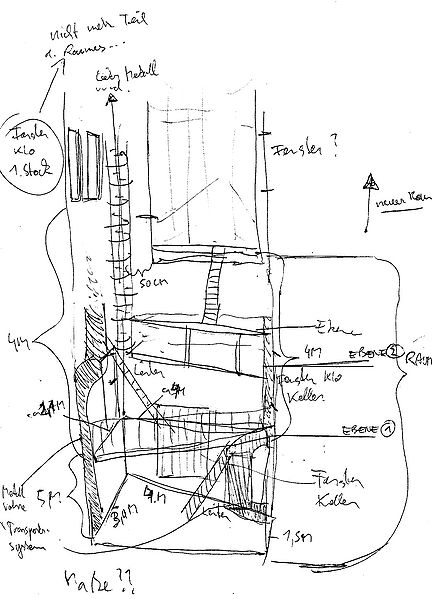 nicht mehr Teil
d. Raumes...
Leder Metall
Fenster
Klo
1. Stock
Fenster?
neuer Raum
50cm
4M
Ebene
4M
EBENE ②
RAUM
Leiter
Fenster Klo
Keller
ca 4M
EBENE ①
Metall
rohre
5M
Fenster
Keller
4M
Leiter
Transport-
system
3,4M
1,5M
Matze??